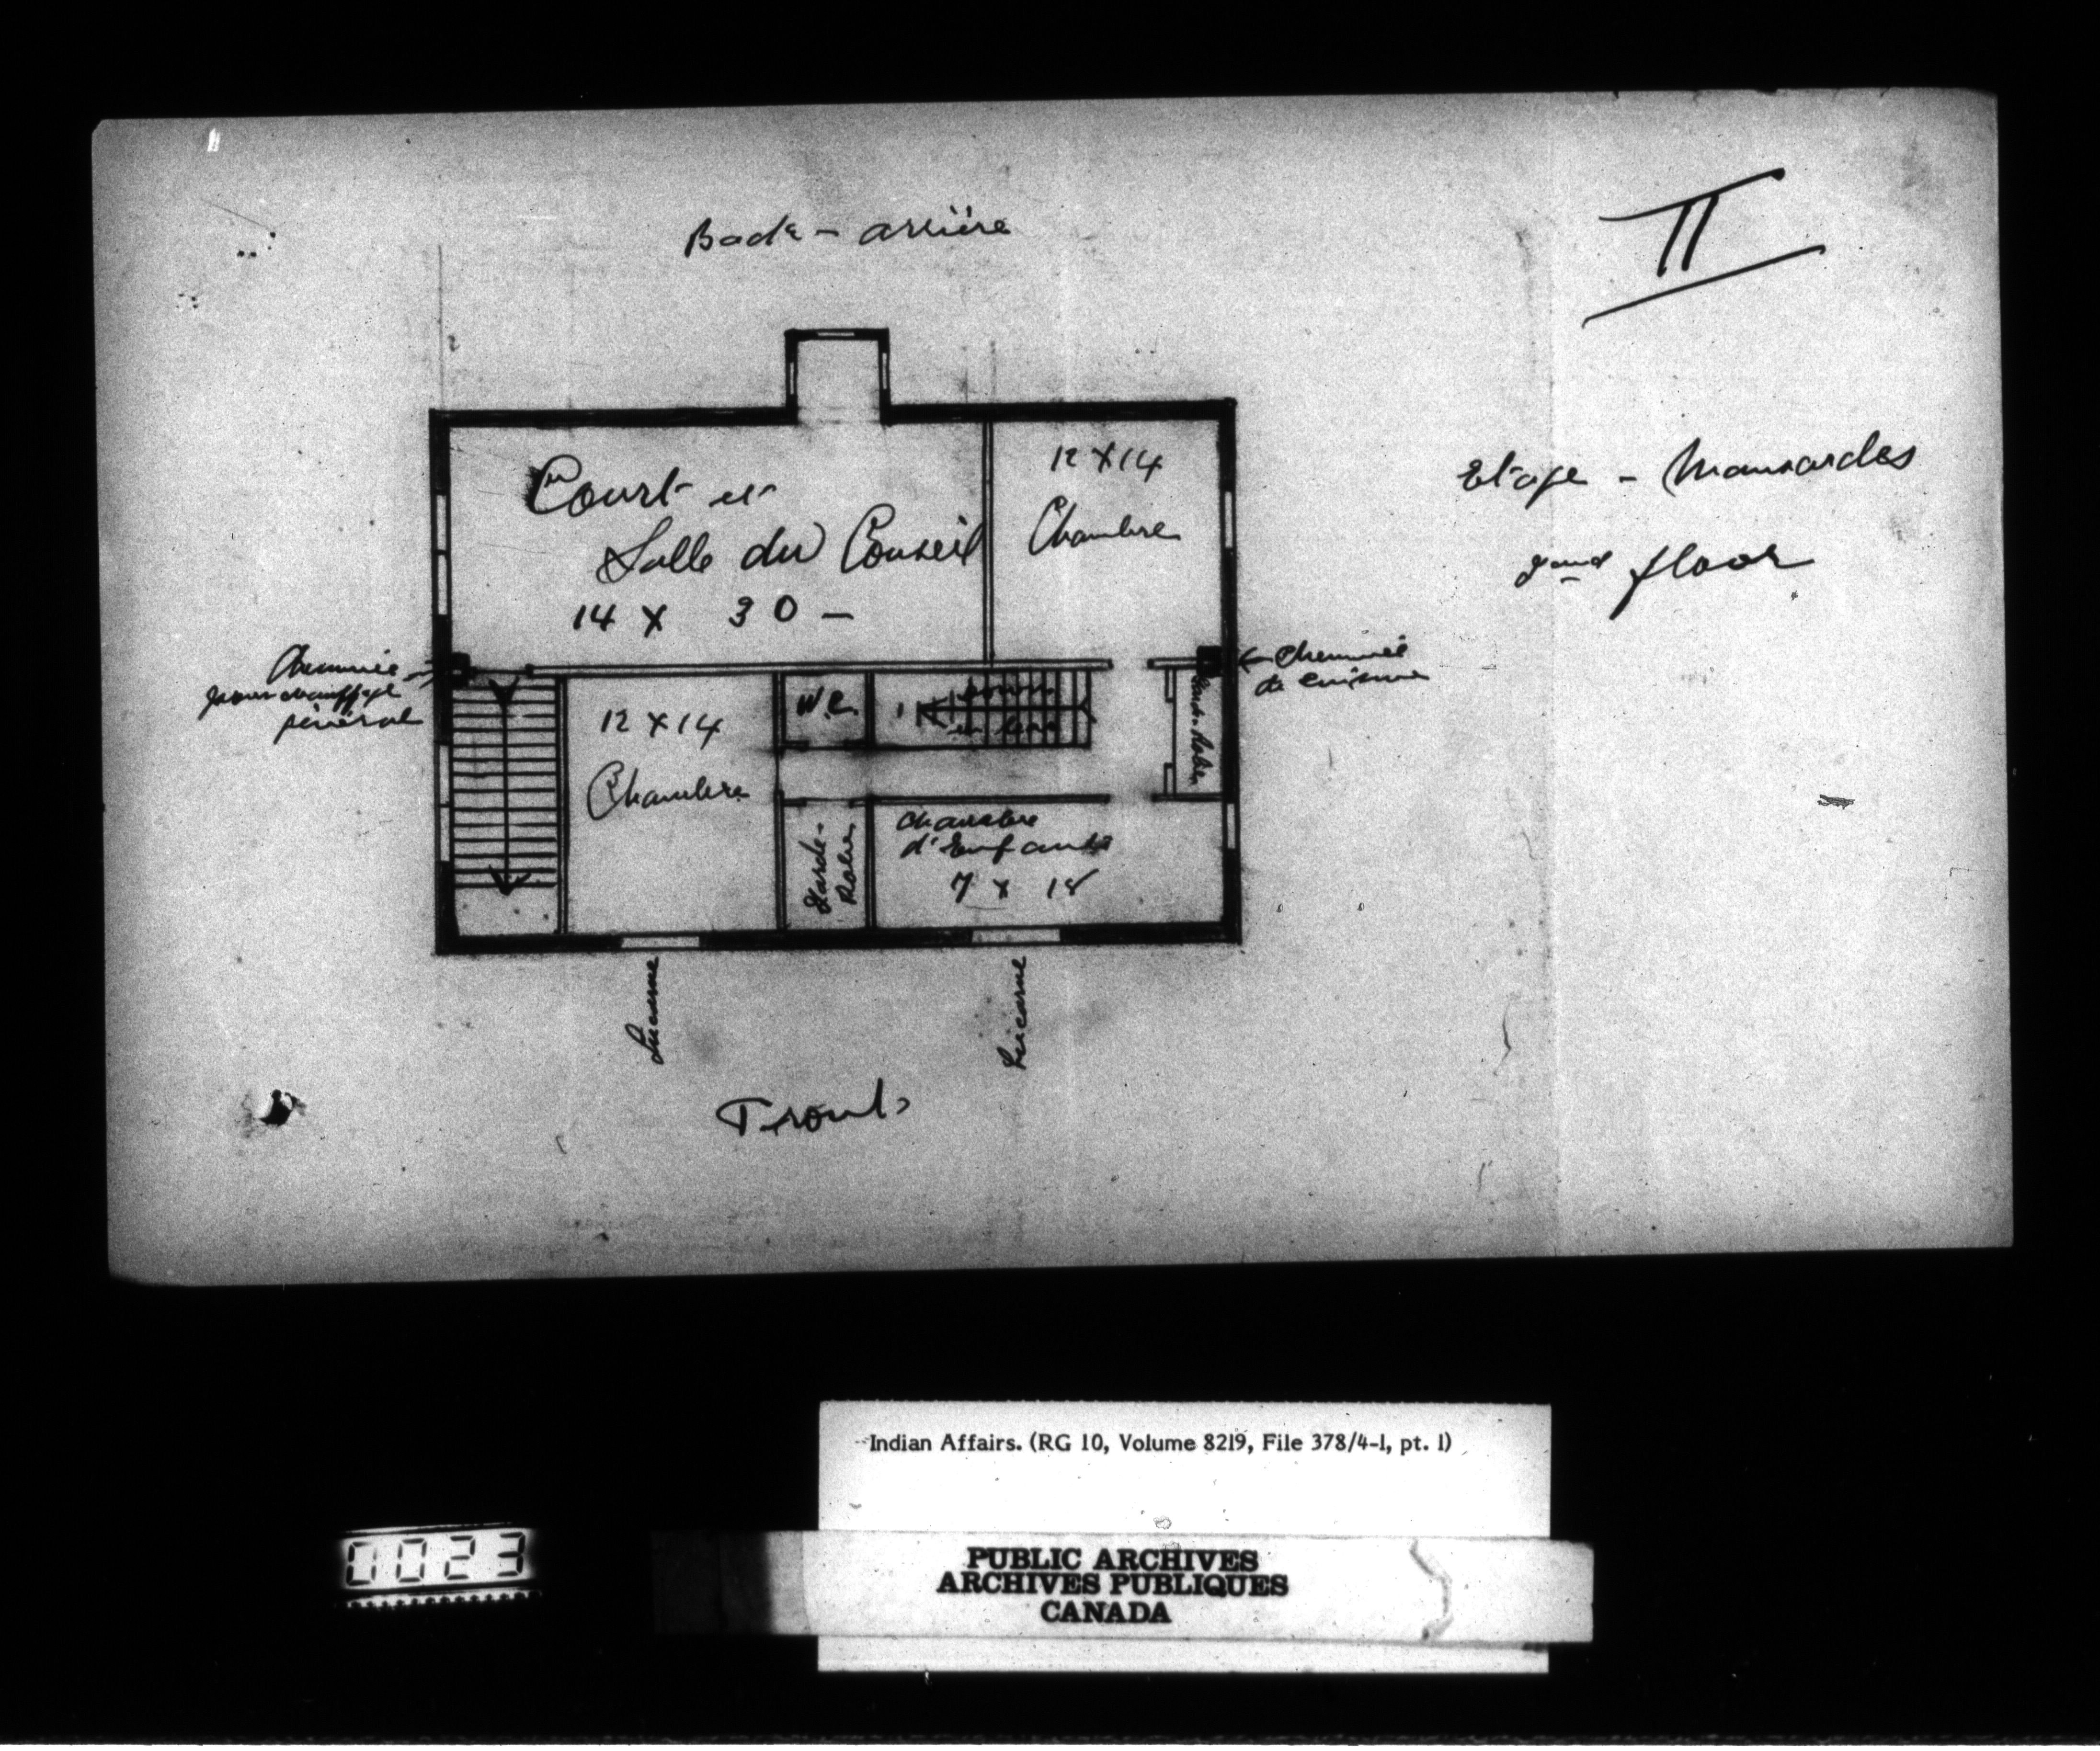 II
Back - arrière
Etage - Mansardes
2nd floor
Court et
Salle du Conseil
14 X 30 -
12 X 14
Chambre
Cheminée
pour chauffage
général
Cheminée
de Cuisine
12 X 14
Chambre
W.C.
en bas
Garde-Robes
Garde-
Robes
Chambre
d'Enfants
7 x 18
Lucarne
Lucarne
Front
Indian Affairs. (RG 10, Volume 8219, File 378/4-1, pt. 1)
0023
PUBLIC ARCHIVES
ARCHIVES PUBLIQUES
CANADA